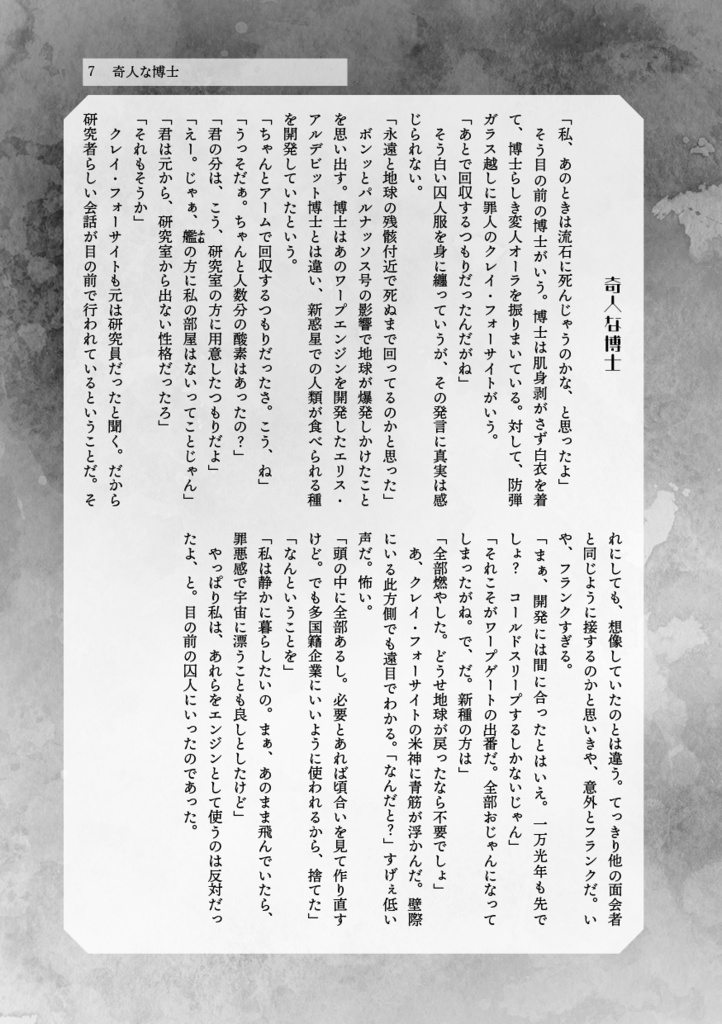 7 奇人な博士
奇人な博士
「私、あのときは流石に死んじゃうのかな、と思ったよ」
そう目の前の博士がいう。博士は肌身剥がさず白衣を着
て、博士らしき変人オーラを振りまいている。対して、防弾
ガラス越しに罪人のクレイ・フォーサイトがいう。
「あとで回収するつもりだったんだがね」
そう白い囚人服を身に纏っていうが、その発言に真実は感
じられない。
「永遠と地球の残骸付近で死ぬまで回ってるのかと思った」
ボンッとパルナッソス号の影響で地球が爆発しかけたこと
を思い出す。博士はあのワープエンジンを開発したエリス・
アルデビット博士とは違い、新惑星での人類が食べられる種
を開発していたという。
「ちゃんとアームで回収するつもりだったさ。こう、ね」
「うっそだぁ。ちゃんと人数分の酸素はあったの？」
「君の分は、こう、研究室の方に用意したつもりだよ」
「えー。じゃぁ、艦の方に私の部屋はないってことじゃん」
「君は元から、研究室から出ない性格だったろ」
「それもそうか」
クレイ・フォーサイトも元は研究員だったと聞く。だから
研究者らしい会話が目の前で行われているということだ。そ
れにしても、想像していたのとは違う。てっきり他の面会者
と同じように接するのかと思いきや、意外とフランクだ。い
や、フランクすぎる。
「まぁ、開発には間に合ったとはいえ。一万光年も先で
しょ？　コールドスリープするしかないじゃん」
「それこそがワープゲートの出番だ。全部おじゃんになって
しまったがね。で、だ。新種の方は」
「全部燃やした。どうせ地球が戻ったなら不要でしょ」
あ、クレイ・フォーサイトの米神に青筋が浮かんだ。壁際
にいる此方側でも遠目でわかる。「なんだと？」すげぇ低い
声だ。怖い。
「頭の中に全部あるし。必要とあれば頃合いを見て作り直す
けど。でも多国籍企業にいいように使われるから、捨てた」
「なんということを」
「私は静かに暮らしたいの。まぁ、あのまま飛んでいたら、
罪悪感で宇宙に漂うことも良しとしたけど」
やっぱり私は、あれらをエンジンとして使うのは反対だっ
たよ、と。目の前の囚人にいったのであった。